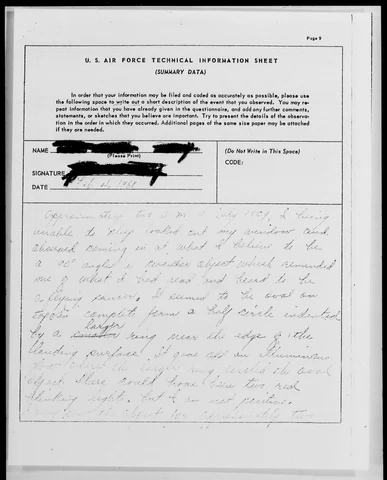 Page 9
U. S. AIR FORCE TECHNICAL INFORMATION SHEET
(SUMMARY DATA)
In order that your information may be filed and coded as accurately as possible, please use
the following space to write out a short description of the event that you observed. You may re-
peat information that you have already given in the questionnaire, and add any further comments,
statements, or sketches that you believe are important. Try to present the details of the observa-
tion in the order in which they occurred. Additional pages of the same size paper may be attached
if they are needed.
NAME
(Please Print)
SIGNATURE
DATE
(Do Not Write in This Space)
CODE:
Approximately two a.m. July I being
unable to sleep looked out my window and
observed coming in at what I believe to be
a 90° angle a peculiar object which reminded
me of what I had read and heard to be
a flying saucer. It seemed to be oval on
top a complete form a half circle indented
larger
by a ring near the edge of the
surface. It gave off an
where the larger ring the oval
object. There could have been two red
blinking lights. but I am not positive.
the object for approximately two